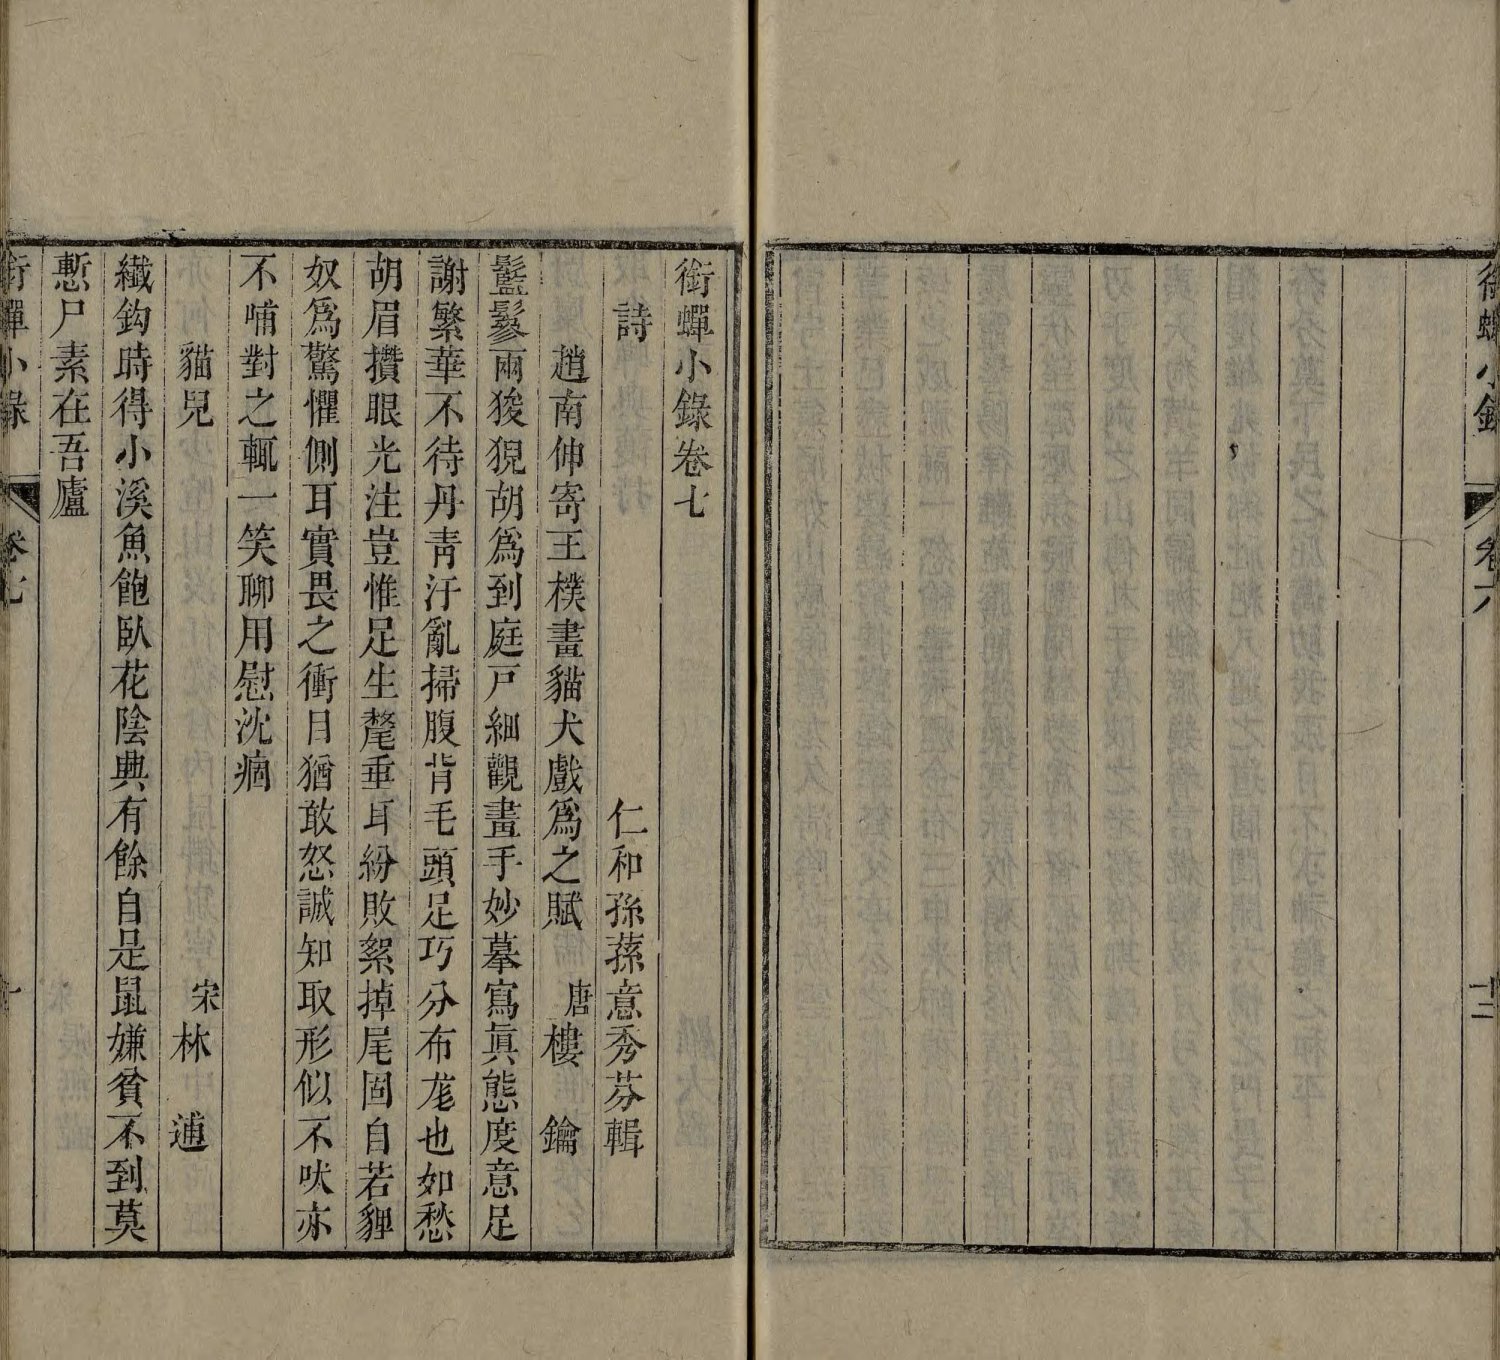 銜蟬小錄
卷六
十二
銜蟬小錄卷七
詩
仁和孫蓀意秀芬輯
趙南伸寄王樸畫貓犬戲爲之賦 唐樓 鑰
鬖兩狻猊胡爲到庭戸細觀畫手妙摹寫眞態度意足
謝繁華不待丹靑汙亂掃腹背毛頭足巧分布尨也如愁
胡眉攢眼光注豈惟足生氂垂耳紛敗絮掉尾固自若貍
奴爲驚懼側耳實畏之衝目猶敢怒誠知取形似不吠亦
不哺對之輒一笑聊用慰沈痼
貓兒 宋林 逋
纖鈎時得小溪魚飽臥花陰興有餘自是鼠嫌貧不到莫
慙尸素在吾廬
銜蟬小錄
卷七
一